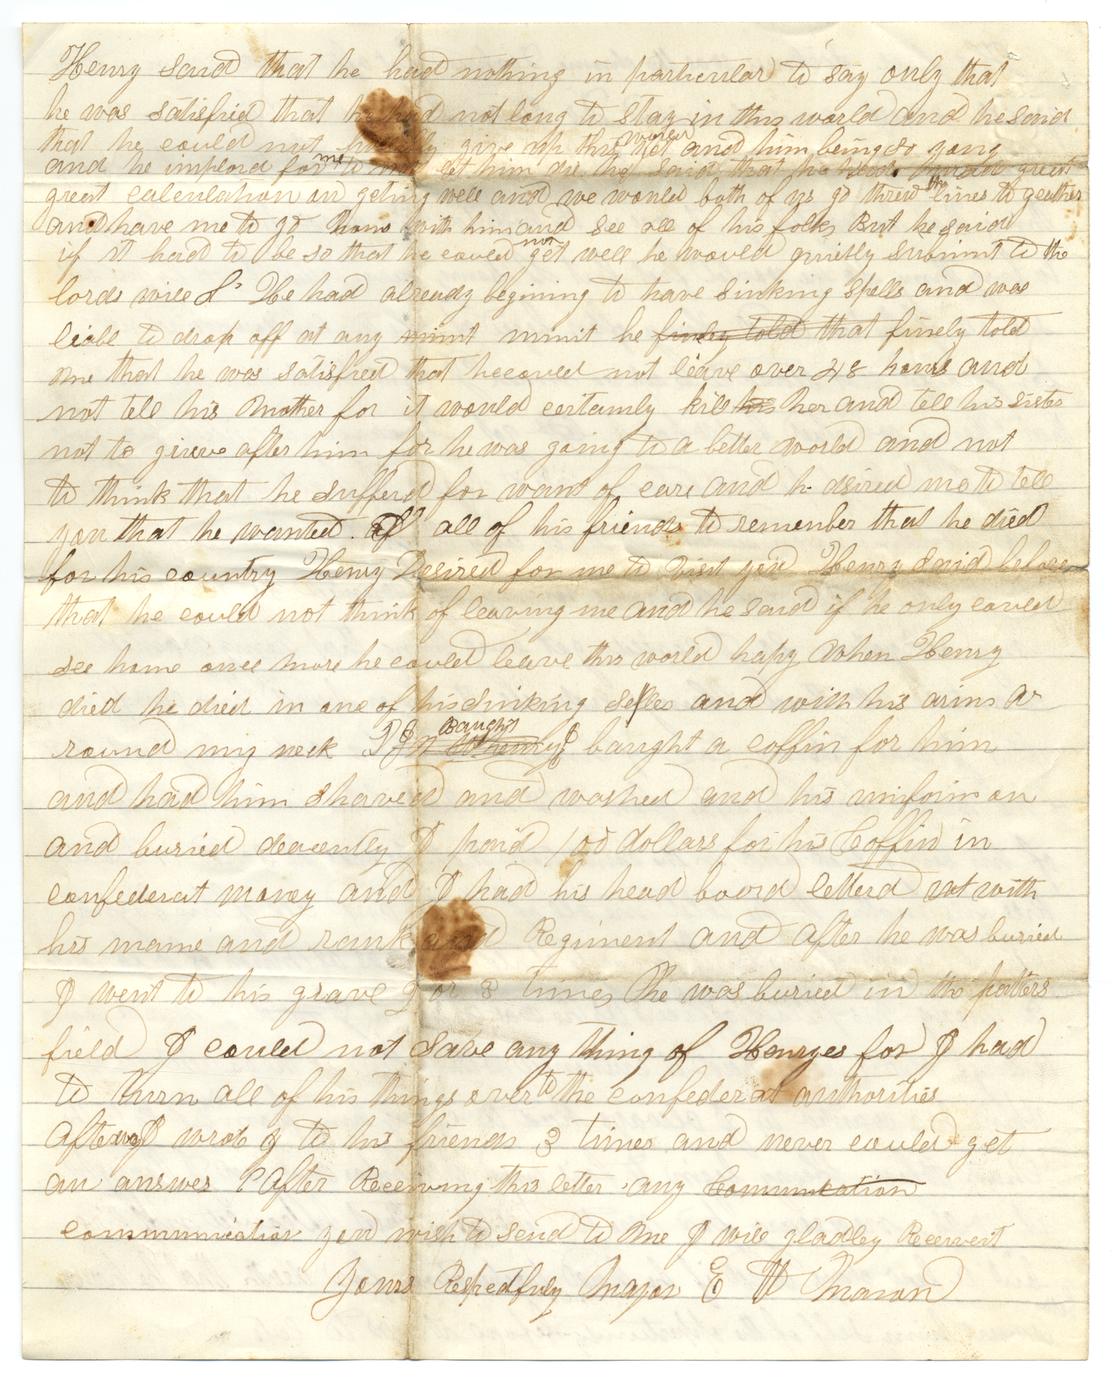 Henry said that he had nothing in particular to say only that
he was satisfied that he had not long to stay in this world and he said
that he could not give up this world yet and him being so yong
and he implord for me to not let him die he said that he had great
great calculation on geting well and we would both of us go threw the lines to geather
and have me to go home with him and see all of his folks But he said
if it had to be so that he coued not get well he would quietly submit to the
lords will & He had already begining to have sinking spells and was
liable to drop off at any minnt minit he finley told that finely told
me that he was satisfied that he coued not leave over 48 hours and
not tell his Mother for it would certainly kill his her and tell his sister
not to grieve after him for he was going to a better world and not
to think that he sufferd for want of care and he desired me to tell
you that he wanted all of his friends to remember that he died
for his country Henry Desired for me to visit you Henry said before
that he could not think of leaving me and he said if he only coued
see home once more he could leave this world hapy When Henry
died he died in one of his sinking and with his arms a
round my neck I Baught baught a coffin for him
and had him shaved and washed and his uniform on
and buried decently I paid 100 dollars for his Coffin in
confederat money and I had his head bourd letterd with
his name and rank and Regiment and after he was buried
I went to his grave 2 or 3 times he was buried in the potters
field I could not save any thing of Henryes for I had
to turn all of his things over to the confederat authorities
I wrote to his friends 3 times and never could get
an answer After Receiving this letter any Communication
communication you wish to send to me I will gladley Receive it
Yours Respectfuly Major E W